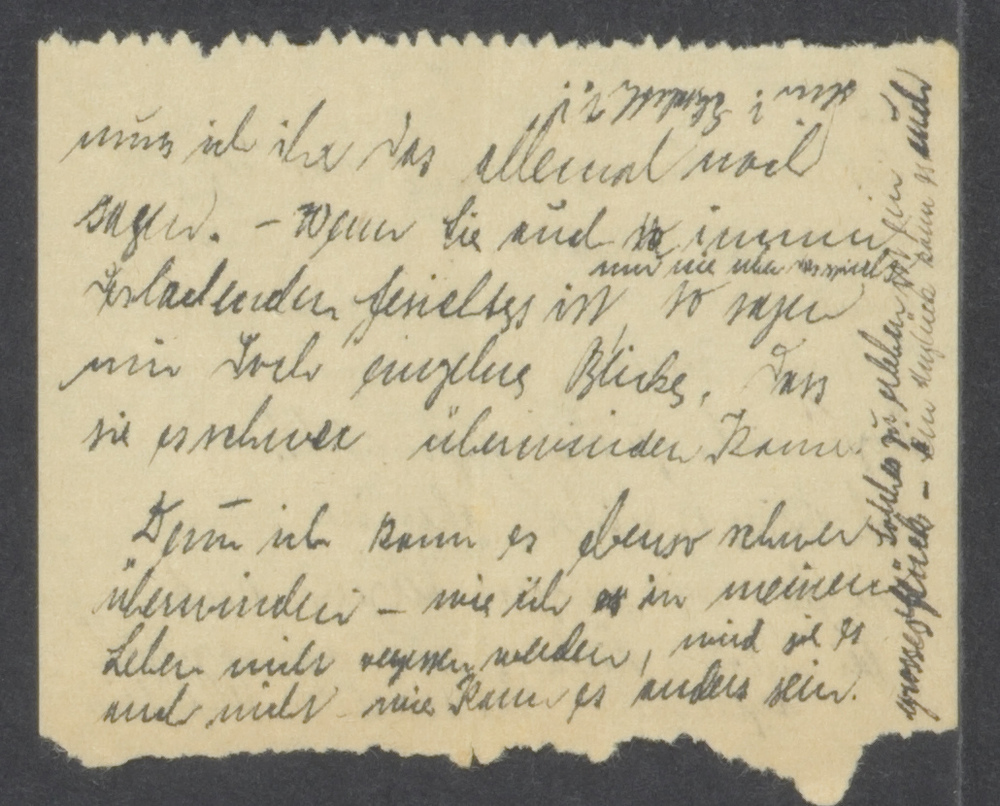 muss ich ihr das allemal noch
sagen. – Wenn Sie auch so immer
lachenden Gesichtes ist, so sagen
mir doch einzelne Blicke, dass
sie es schwer überwinden kann.
Denn ich kann es ebenso schwer
überwinden – wie ich es in meinem
Leben nicht vergessen werden, wird sie es
auch nicht – wie kann es anders sein.
Solches zu erleben ist ein
grosses Glück – ein Unglück kann es auch